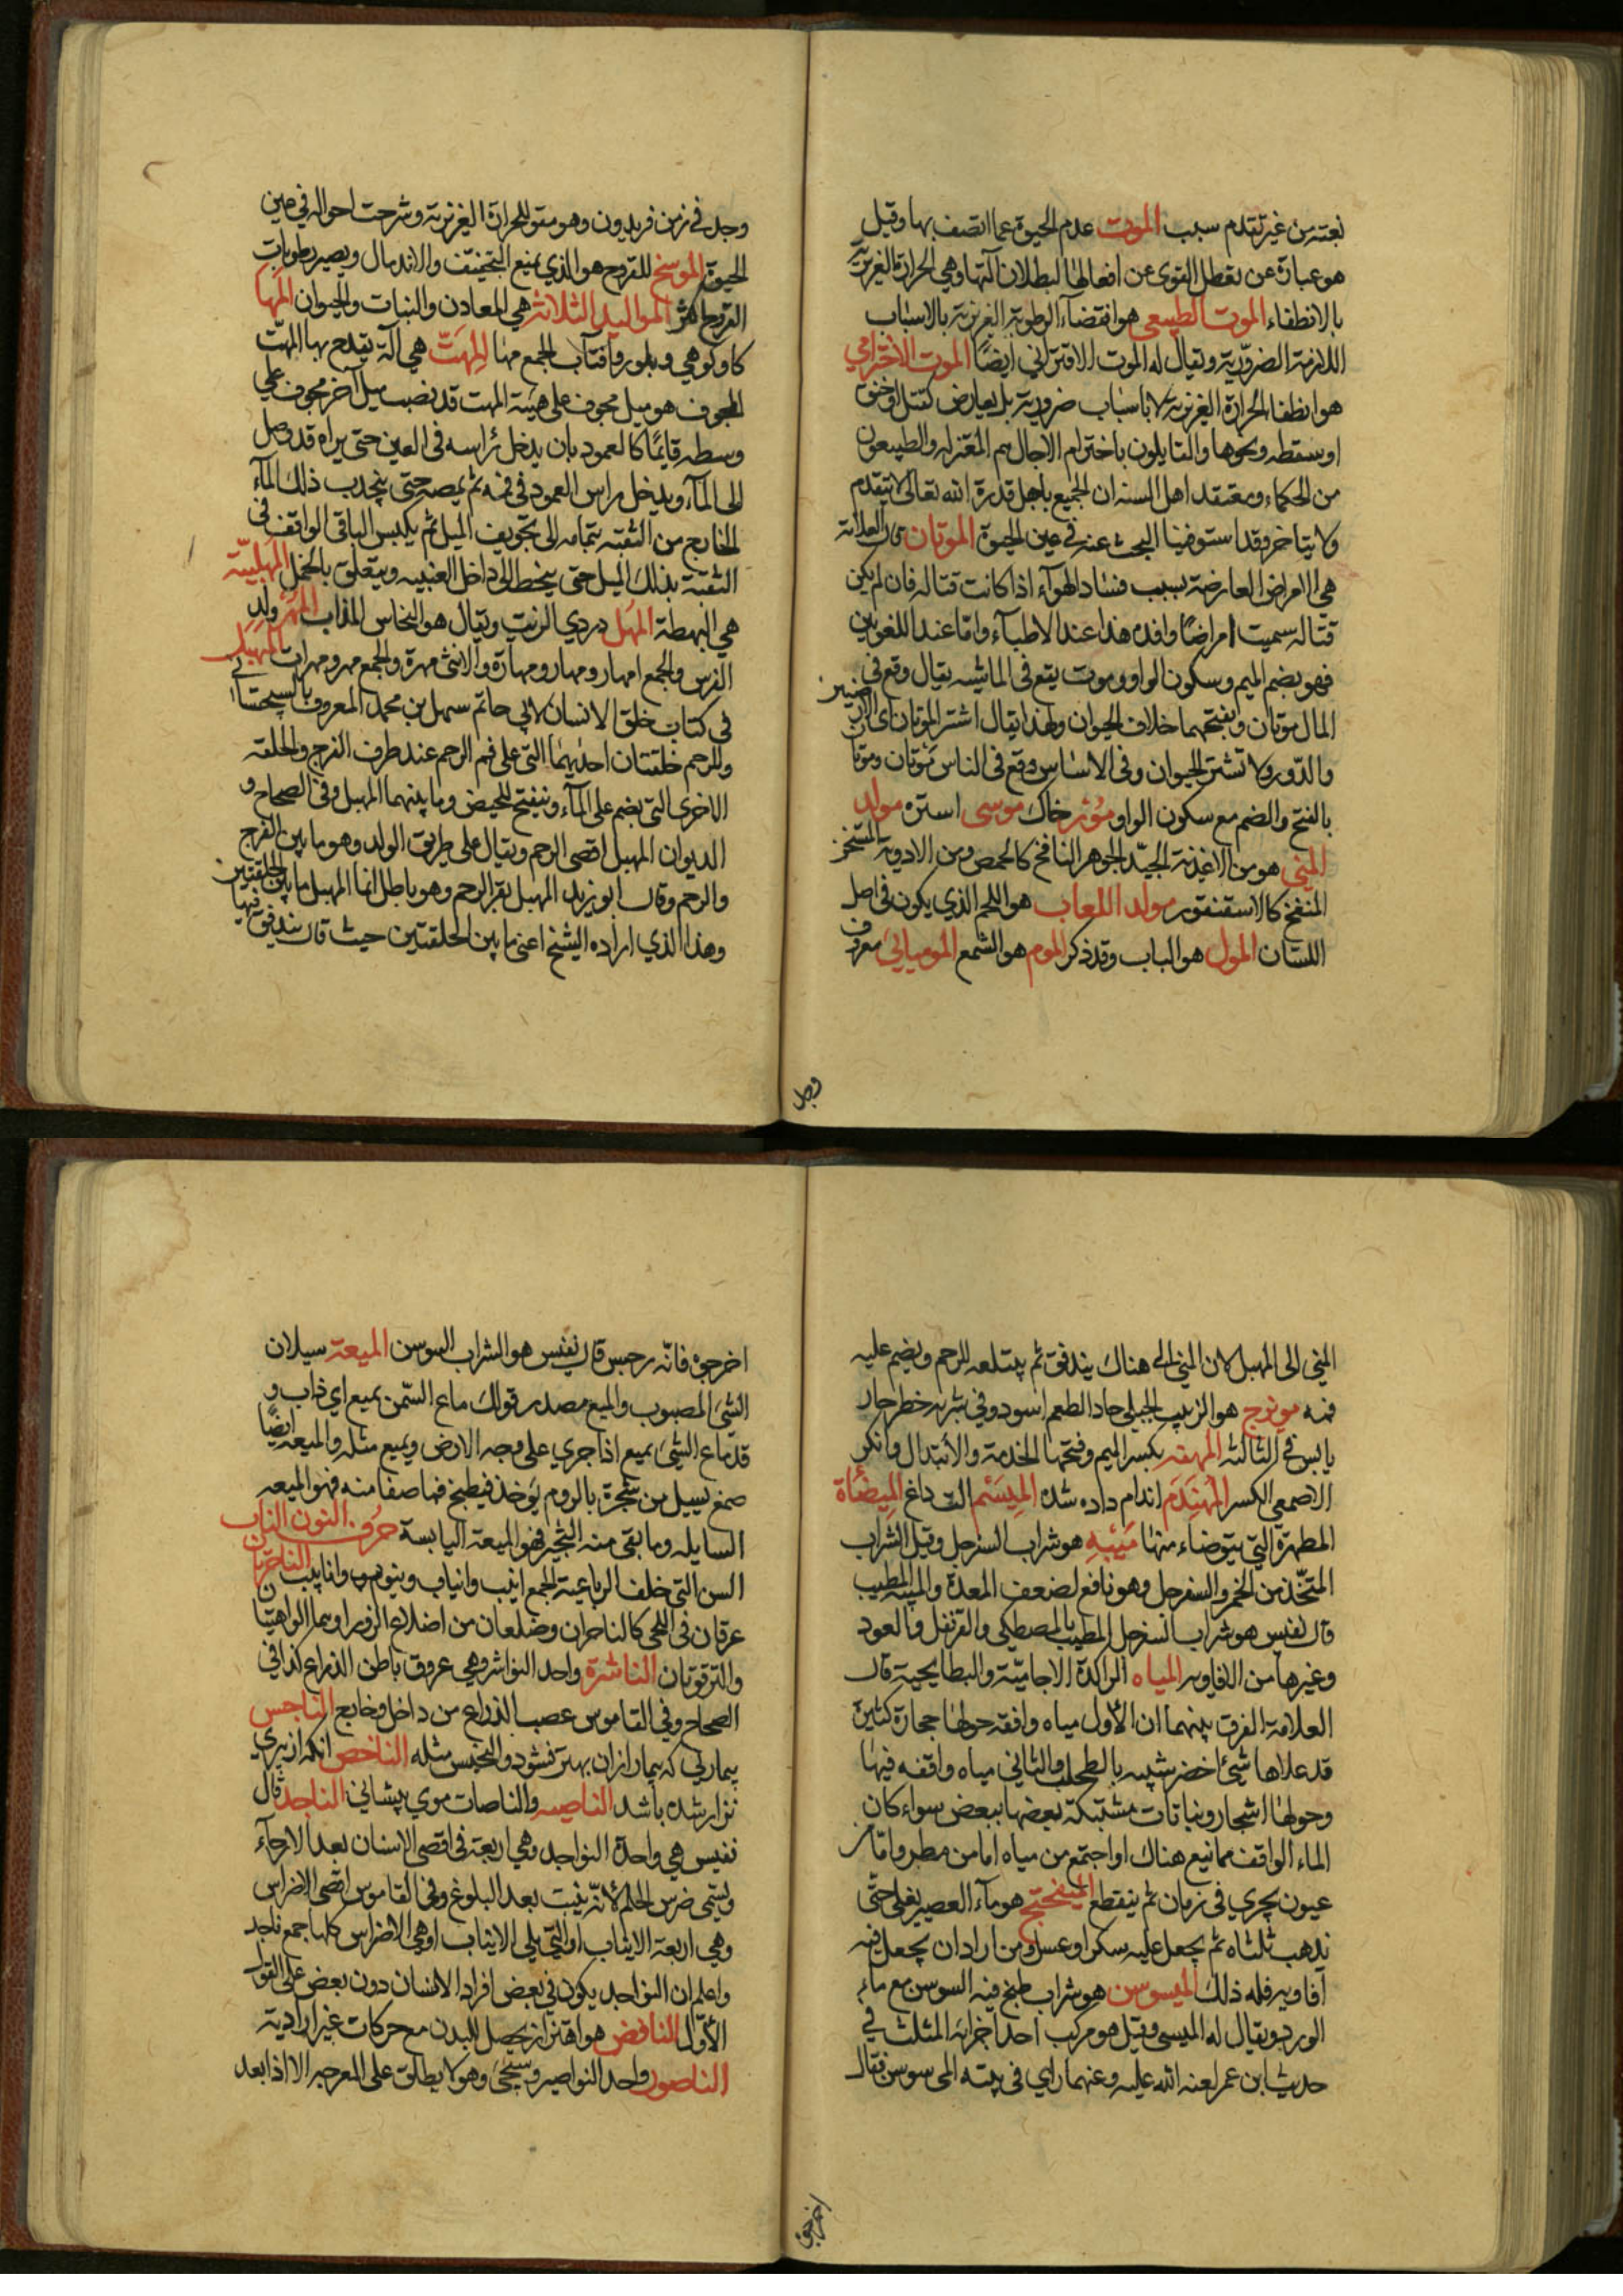 بغتة من غير تقدم سبب الموت عدم الحيوة عما اتصف بها وقيل
هو عبارة عن تعطل القوى عن افعالها لبطلان آلتها وهي الحرارة الغريزية
بالانطفاء الموت الطبيعي هو انقضاء الرطوبة الغريزية بالاسباب
اللازمة الضرورية ويقال له الموت الاقتراني ايضًا الموت الاخترامي
هو انطفا الحرارة الغريزية لا باسباب ضرورية بل بعارض كقتل او خنق
او سقطه ونحوها والقايلون باخترام الاجال هم المعتزله والطبيعون
من الحكماء ومعتقد اهل السنه ان الجميع باجل قدرة الله تعالى لا يتقدم
ولا يتاخر وقد استوفينا البحث عنه في عين الحيوة الموتان قال العلامة
هي الامراض العارضة بسبب فساد الهوآء اذا كانت قتاله فان لم يكن
قتاله سميت امراضًا وافده هذا عند الاطبآء واما عند اللغويين
فهو بضم الميم وسكون الواو وموت يقع في الماشيه يقال وقع في
المال موتان وبفتحهما خلاف الحيوان ولهذا يقال اشتر الموتان اى الارضين
والدّور ولا تشتر الحيوان وفى الاساس وقع فى الناس موتان وموتا
بالفتح والضم مع سكون الواو مؤثر خاك موسى استره مولد
المني هو من الاغذية الجيّد الجوهر النافخ كالحمص ومن الادوية المسخن
المنفخ كالاسقنقور مولد اللعاب هو اللحم الذي يكون في اصل
اللسان المول هو الباب وقد ذكر الموم هو الشمع الموميائي معروف
وجد
وجد في زمن فريدون وهو مقو للحرارة الغريزية وشرحت احواله في عين
الحيوة الموسخ للقروح هو الذي يمنع التجفيف والاندمال ويصير رطوبات
القروح اكثر المواليد الثلاثة هي المعادن والنبات والحيوان المها
كاو كوهي وبلور وافتاب الجمع مها المِهَتّ هي آلة يقدح بها المهتّ
المجوف هو ميل مجوف على هيئة المهت قد نصب ميل آخر مجوف على
وسطه قايمًا كالعمود بان يدخل رأسه فى العين حتى يراه قد وصل
الى المآء ويدخل راس العمود فى فمه ثم يمصه حتى ينجذب ذلك المآء
الخارج من الثقبة بتمامه الى تجويف الميل ثم يكبس الباقى الواقف فى
الثقبة بذلك الميل حتى ينحط الى داخل العنبيه ويتعلق بالخمل المهلبيّة
هي البهطة المهل دردي الزيت ويقال هو النحاس المذاب المهر ولد
الفرس والجمع امهار ومهار ومهارة والانثى مهرة والجمع مهر ومهرات المهبل
فى كتاب خلق الانسان لابي حاتم سهل بن محمد المعروف بالسجستاني
وللرحم حلقتان احديهما التى على فم الرحم عند طرف الفرج والحلقه
الاخرى التى بضم على المآء وينفتح للحيض وما بينهما المهبل وفى الصحاح و
الديوان المهبل اقصى الرحم ويقال على طريق الولد وهو ما بين الفرج
والرحم وقال ابو زيد المهبل قعر الرحم وهو باطل انما المهبل ما بين الحلقتين
وهذا الذي اراده الشيخ اعنى ما بين الحلقتين حيث قال يندفق فيها
المني الى المهبل لان المني الى هناك يندفق ثم يبتلعه الرحم ويضم عليه
فمه مويزج هو الزبيب الجبلي حاد الطعم اسود وفي شربه خطر حار
يابس فى الثالثه المهنه بكسر الميم وفتحها الخدمة والابتذال وانكر
الاصمعي الكسر المُهَندَم اندام داده شده المِيسَم الت داغ المِيضأة
المطهرة التي يتوضاء منها مَيْبِه هو شراب السفرجل وقيل الشراب
المتخّذ من الخمر والسفرجل وهو نافع لضعف المعدة والميبه المطيب
قال نفيس هو شراب السفرجل المطيب بالمصطكى والقرنفل والعود
وغيرها من الافاويه المياه الراكدة الاجاميّة والبطايحية قال
العلامة الفرق بينهما ان الاول مياه واقفه حولها حجارة كثيرة
قد علاها شئ اخضر شبيه بالطحلب والثاني مياه واقفه فيها
وحولها اشجار ونباتات مشتبكة بعضها ببعض سواء كان
الماء الواقف مما نبع هناك او اجتمع من مياه اما من مطر واما من
عيون يجري فى زمان ثم ينقطع الميفختج هو مآء العصير يغلى حتّى
يذهب ثلثاه ثم يجعل عليه سكر او عسل ومن اراد ان يجعل فيه
آفاويه فله ذلك الميسوسن هو شراب طبخ فيه السوسن مع ماء
الورد ويقال له الميسى وقيل هو مركب احد اجزائه المثلث في
حديث ابن عمر لعنه الله عليه وعنهما راي فى بيته الميسوسن فقال
اخرجوه
اخرجوه فانّه رجس قال نفيس هو الشراب السوسن الميعة سيلان
الشئ المصبوب والميع مصدر قولك ماع السّمن يميع اي ذاب و
قد ماع الشئ يميع اذا جرى على وجه الارض ويميع مثله والميعه ايضًا
صمغ يسيل من شجرة بالروم يؤخذ فيطبخ فما صفا منه فهو الميعه
السايله وما بقى منه الثجير فهو الميعة اليابسة حرف النون الناب
السن التى خلف الرباعية الجمع انيب وانياب ونيوب واناييب الناحران
عرقان فى اللحى كالناحران وضلعان من اضلاع الزور او هما الواهنتان
والترقوتان الناشرة واحد النواشر وهي عروق باطن الذراع كذا فى
الصحاح وفي القاموس عصب الذراع من داخل وخارج الناجس
بيمارئي كه بيمار ازان بهتر نشود والنجيس مثله الناخص انكه از پيري
نزار شده باشد الناصيه والناصات موي پيشاني الناجذ قال
نفيس هي واحدة النواجذ وهي اربعة فى اقصى الاسنان بعد الارحآء
ويسمّى ضرس الحلم لانّه ينبت بعد البلوغ وفى القاموس اقصى الاضراس
وهي اربعة الانياب او التي يلى الانياب او هي الاضراس كلها جمع ناجذ
واعلم ان النواجذ يكون في بعض افراد الانسان دون بعض على القول
الأوّل النافض هو اهتزاز يحصل للبدن مع حركات غير ارادية
الناصور واحد النواصير وسيجئ وهو لا يطلق على المعر جبر الا اذا بعد